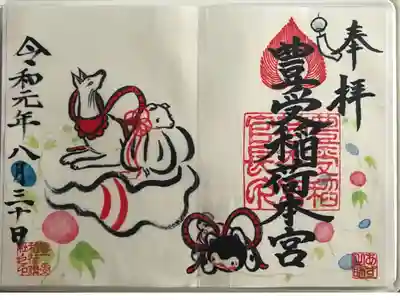 奉拝
豊受稲荷本宮
令和元年八月三十日